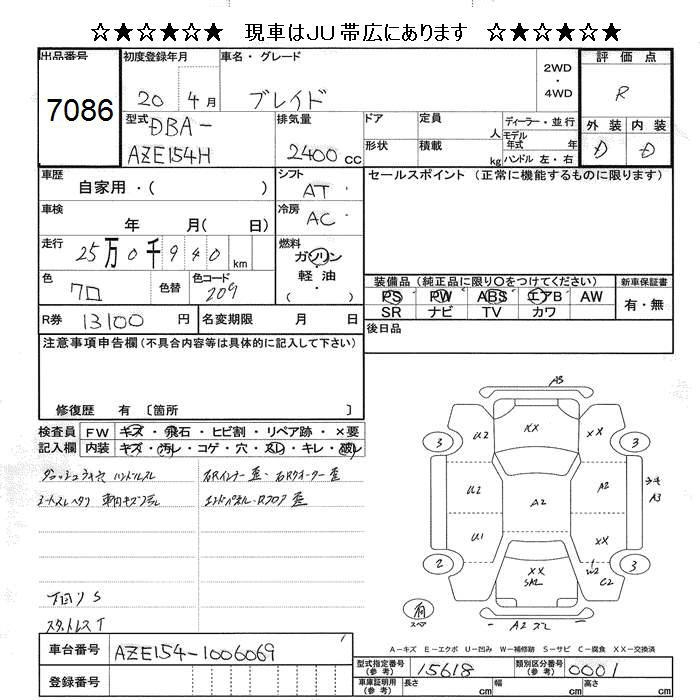 ☆★☆★☆ 現車はJU帯広にあります ☆★☆★☆
出品番号 初度登録年月 車名・グレード 2WD・4WD 評価点
7086 20 4月 ブレイド R
型式 DBA- 排気量 ドア 定員 人 ディーラー・並行 外装 内装
AZE154H 2400cc 形状 積載 kg モデル年式 年 ハンドル 左・右 D D
車歴 自家用・( ) シフト AT セールスポイント (正常に機能するものに限ります)
車検 年 月( 日) 冷房 AC
走行 25万0千940km 燃料 ガソリン
軽油
( )
色 クロ 色替 色コード 209 装備品 (純正品に限り○をつけてください) 新車保証書
PS PW ABS エアB AW 有・無
SR ナビ TV カワ
R券 13100円 名変期限 月 日 後日品
注意事項申告欄 (不具合内容等は具体的に記入して下さい)
修復歴 有 [箇所 ]
検査員 FW キズ・飛石・ヒビ割・リペア跡・×要
記入欄 内装 キズ・汚レ・コゲ・穴・スレ・キレ・破レ
ダッシュライト穴 ハンドルスレ 右Rインナー歪・右Rクオーター歪
シートスレヘタリ 車内キズコスレ エンドパネル・Rフロア歪
下回りS
スタットレスT
A3
3 U2 XX XX 3
U2 A2 A2 A3
U1 XX
2 XX SA2 W2 C2 3
有 スペア A2
A-キズ E-エクボ U-凹み W-補修跡 S-サビ C-腐食 XX-交換済
車台番号 AZE154-1006069
型式指定番号(参考) 15618 類別区分番号(参考) 0001
登録番号 車庫証明用(参考) 長さ cm 幅 cm 高さ cm